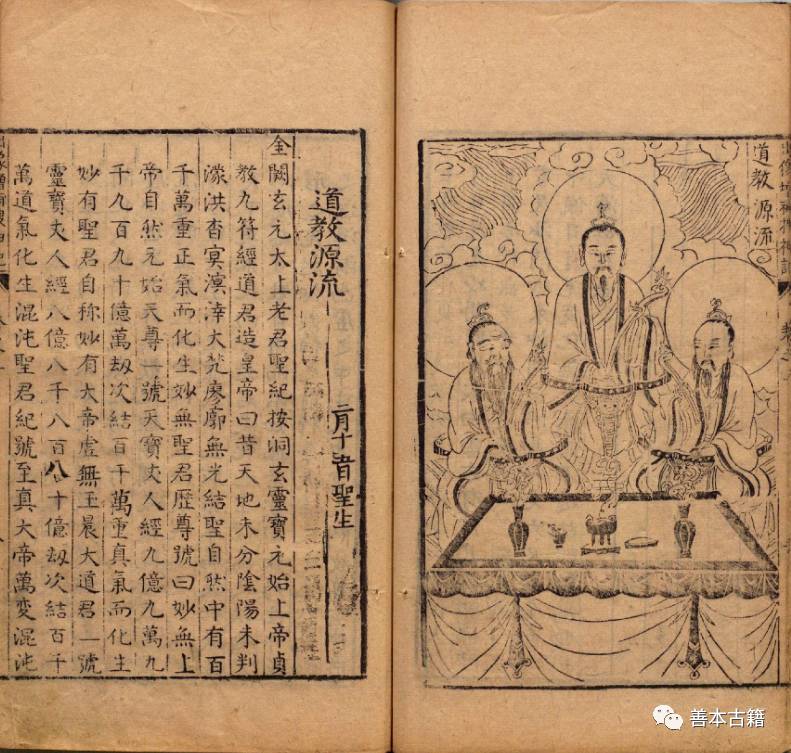 道教源流
道教源流 二月十五日聖生
金闕玄元太上老君聖紀按洞玄靈寶元始上帝貞
教九符經道君造皇帝曰昔天地未分陰陽未判
濛洪杳冥溟涬大梵寥廓無光結聖自然中有百
千萬重正氣而化生妙無聖君歷尊號曰妙無上
帝自然元始天尊一號天寶丈人經九億九萬九
千九百九十億萬劫次結百千萬重真氣而化生
妙有聖君自称妙有大帝虛無玉晨大道君一號
靈寶丈人經八億八千八百八十億劫次結百千
萬道氣化生混沌聖君紀號至真大帝萬變混沌
善本古籍